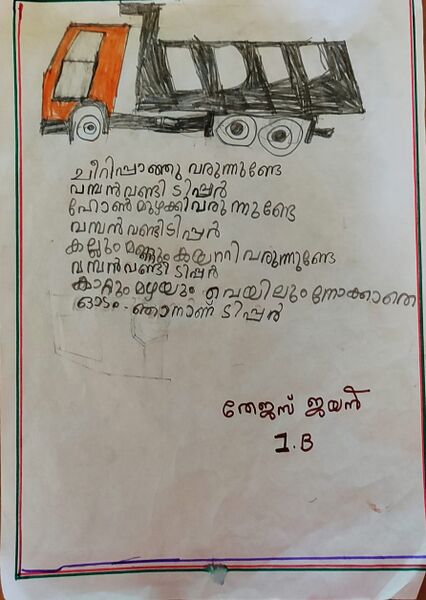 ചീറിപ്പാഞ്ഞു വരുന്നുണ്ടേ
വമ്പൻവണ്ടി ടിപ്പർ
ഹോൺമുഴക്കിവരുന്നുണ്ടേ
വമ്പൻവണ്ടിടിപ്പർ
കല്ലും മണ്ണും കയററിവരുന്നുണ്ടേ
വമ്പൻവണ്ടി ടിപ്പർ
കാറ്റും മഴയും വെയിലും നോക്കാതെ
ഓടും ഞാനാണ് ടിപ്പർ
തേജസ് ജയൻ
1.B